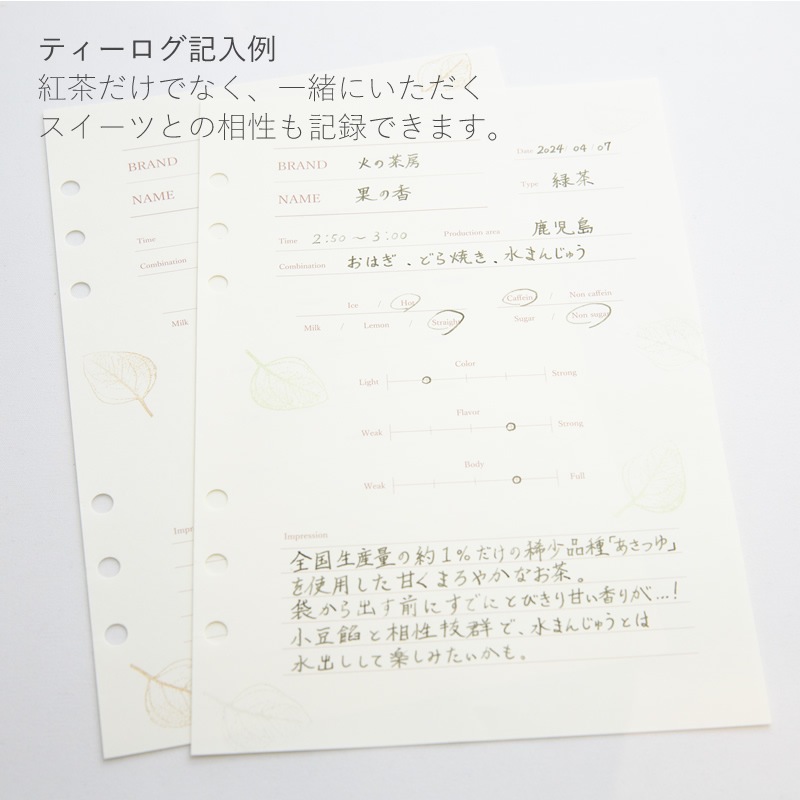 ティーログ記入例
紅茶だけでなく、一緒にいただく
スイーツとの相性も記録できます。
BRAND
NAME
Time
Combination
Milk
BRAND 火の茶房
Date 2024 / 04 / 07
NAME 果の香
Type 緑茶
Time 2:50 ~ 3:00 Production area 鹿児島
Combination おはぎ、どら焼き、水まんじゅう
Ice / Hot Caffein / Non caffein
Milk / Lemon / Straight Sugar / Non sugar
Color
Light Strong
Flavor
Weak Strong
Body
Weak Full
Impression
全国生産量の約1%だけの稀少品種「あさつゆ」
を使用した甘くまろやかなお茶。
袋から出す前にすでにとびきり甘い香りが...!
小豆餡と相性抜群で、水まんじゅうとは
水出しして楽しみたいかも。